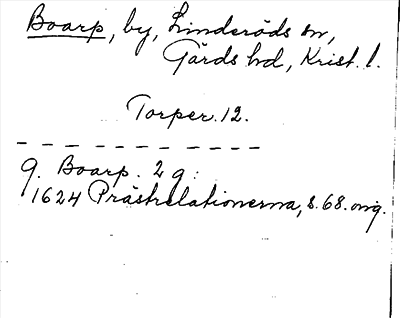 Boarp, by, Linderöds sn,
Gärds hd, Krist. l.
Torper. 12.
g. Boarp. 2 g:
1624 Prästrelationerna, s. 68. orig.